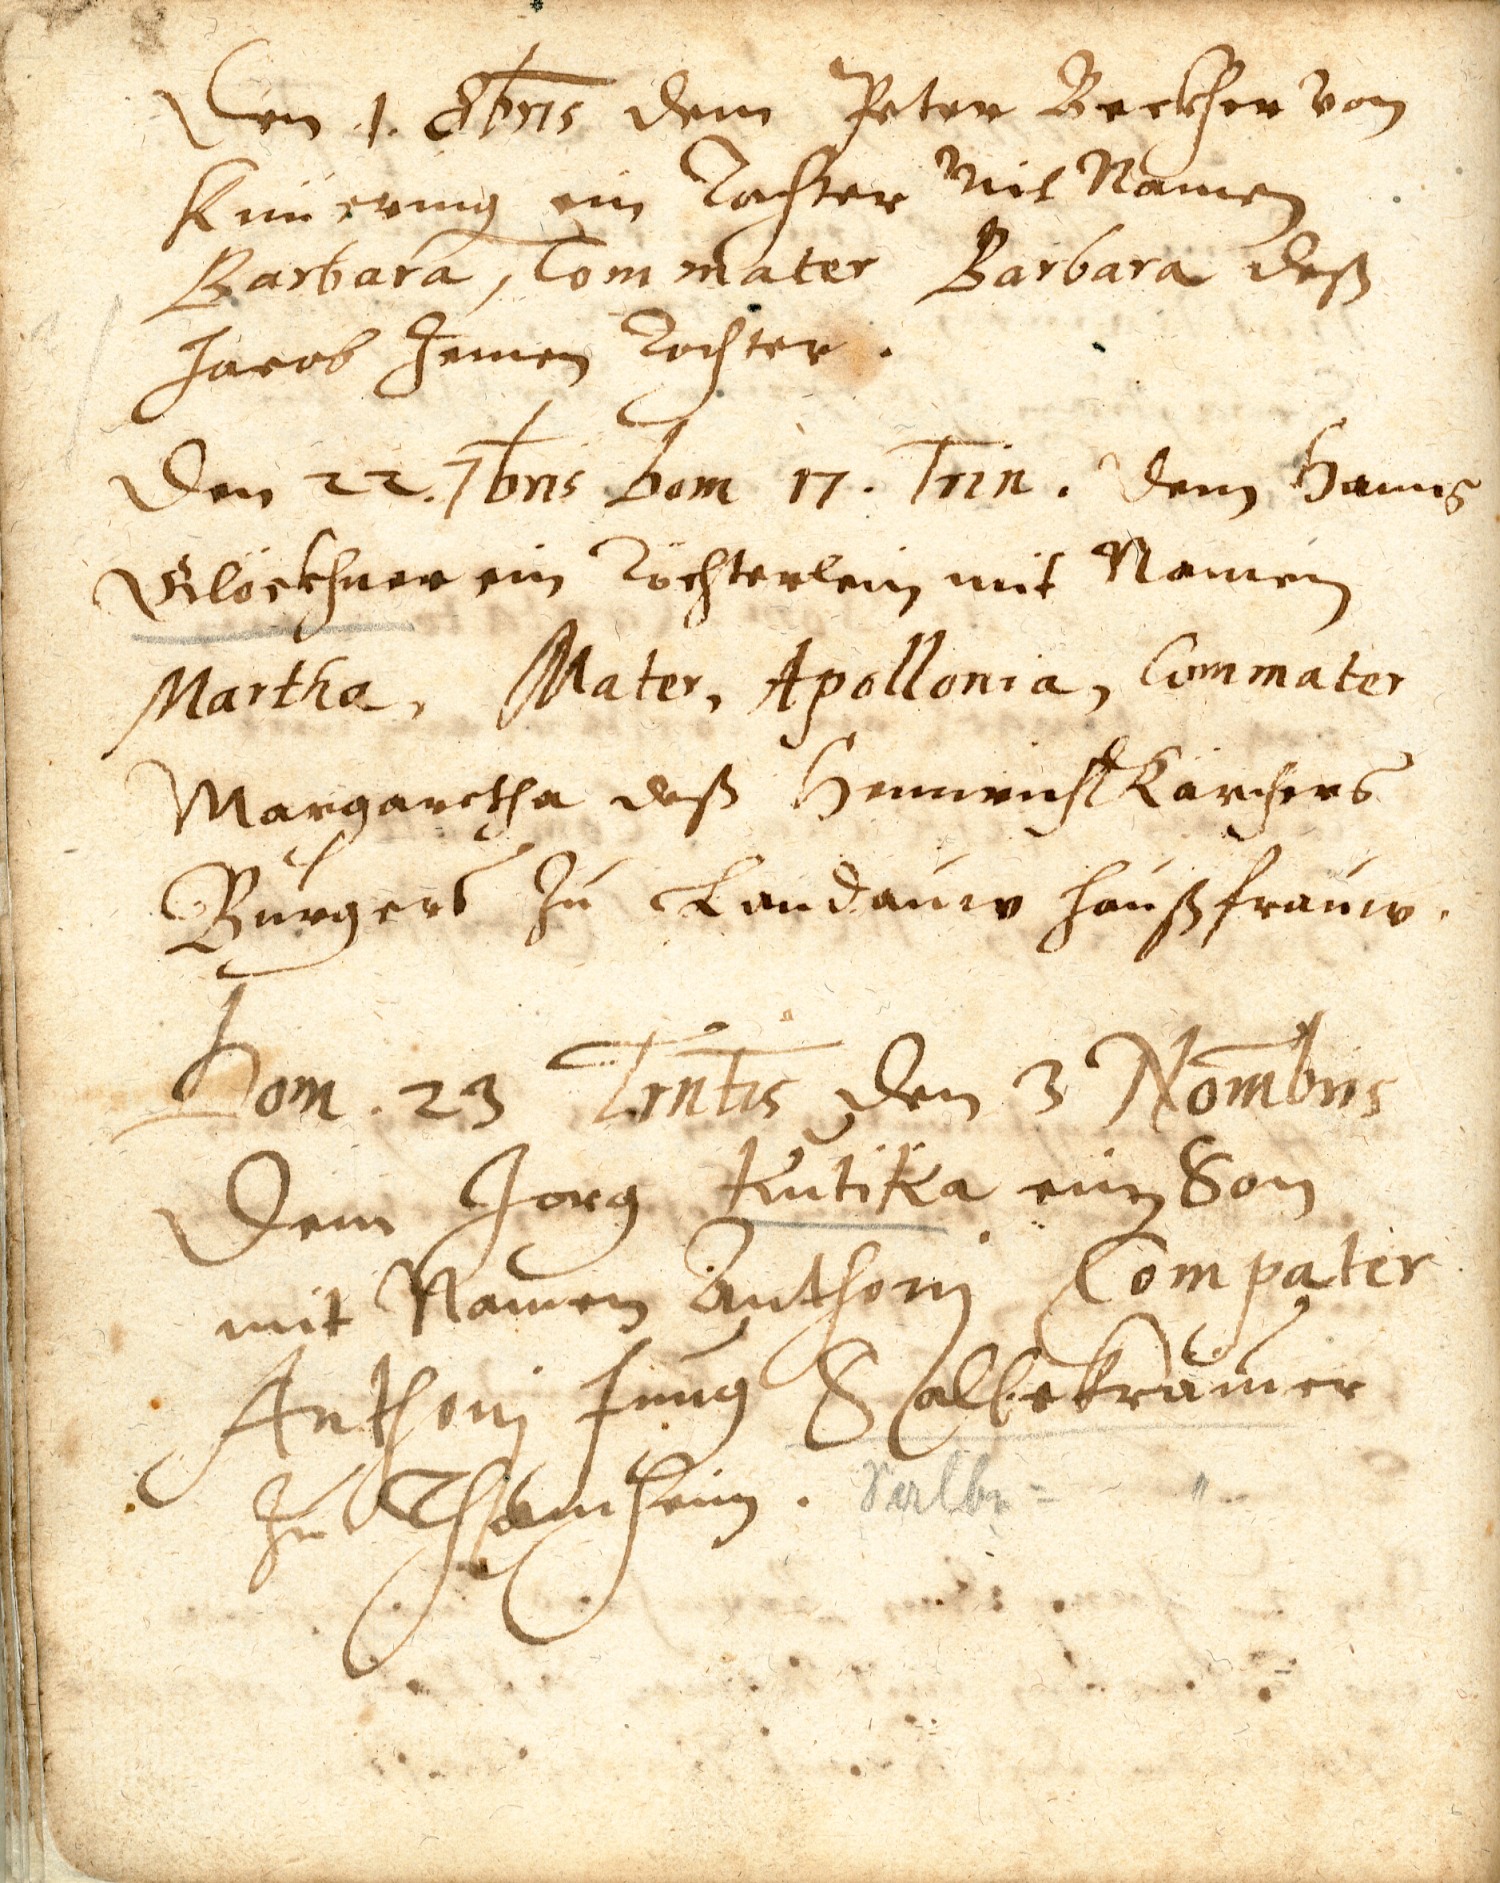 Den 1. 8bris dem Peter Beckher von
Knüering ein Tochter Mit Namen
Barbara, Commater Barbara deß
Jacob Hemen Tochter.
Den 22. 7bris Dom 17. Trin. dem Hanns
Glöckhner ein Töchterlein mit Namen
Martha, Mater, Apollonia, Commater
Margaretha deß Hennrich Kärchers
Burgers zu Landauw haußfrauw.
Dom. 23 Trntis den 3 Nombris
Dem Jorg Kutika ein Son
mit Namen Anthonj Compater
Anthonj Jung Salbekrämer
zu Thamheim. Salbe=